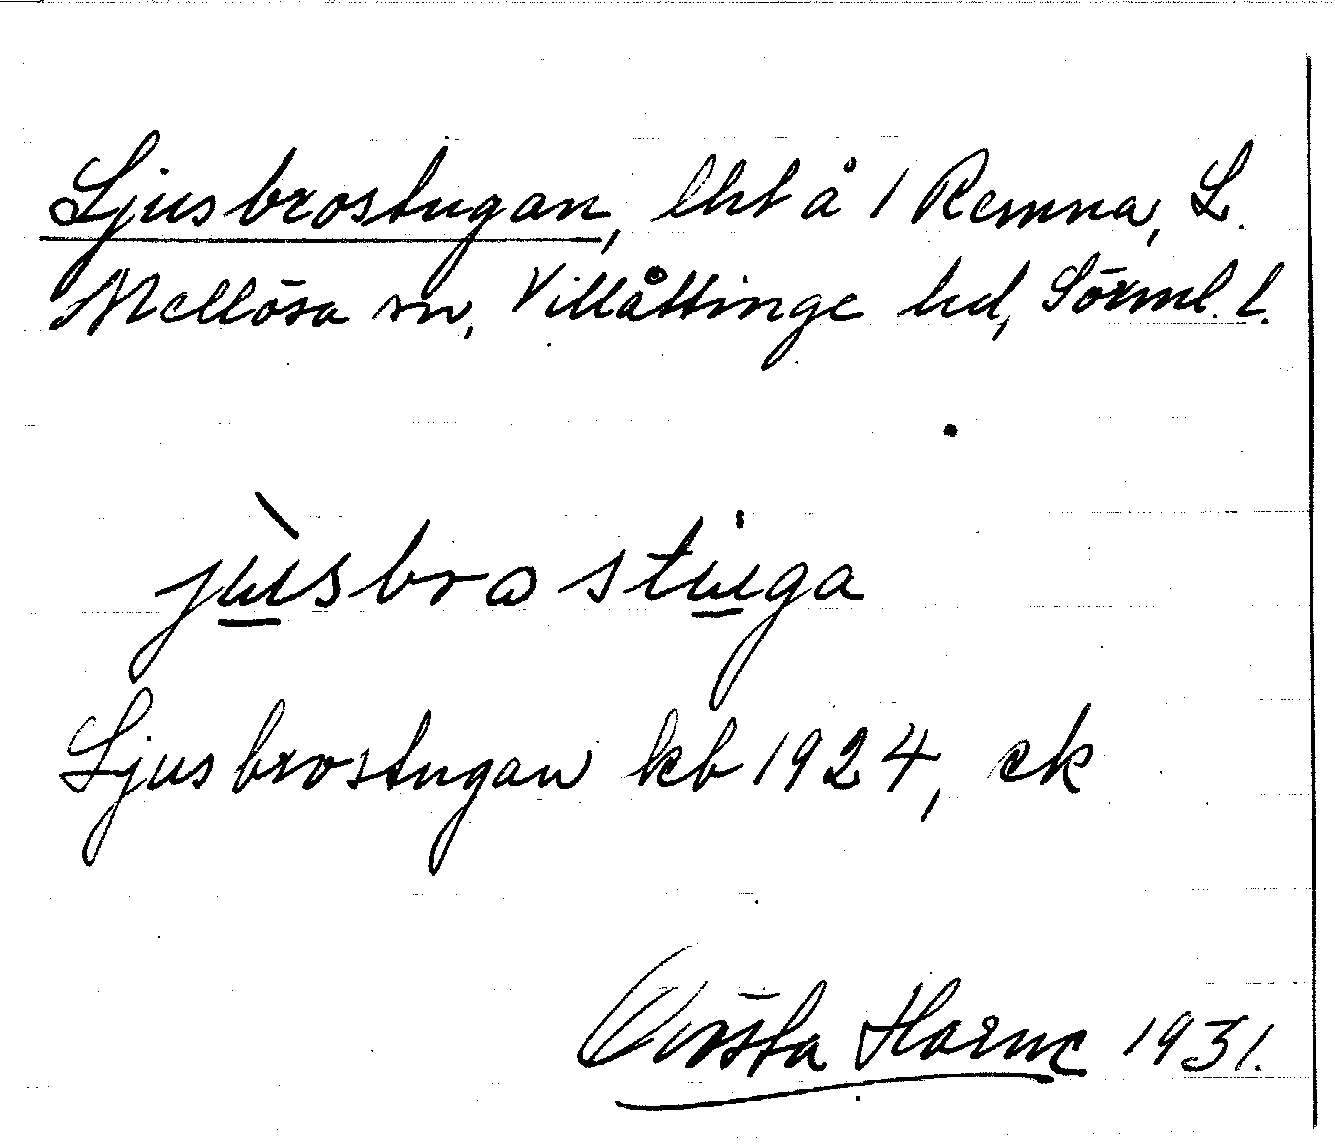 Ljusbrostugan, lht å 1 Remna, L.
Mellösa sn, Villåttinge hd, Sörml. l.
jùsbrostuga
Ljusbrostugan kb 1924, ek
Horne 1931.